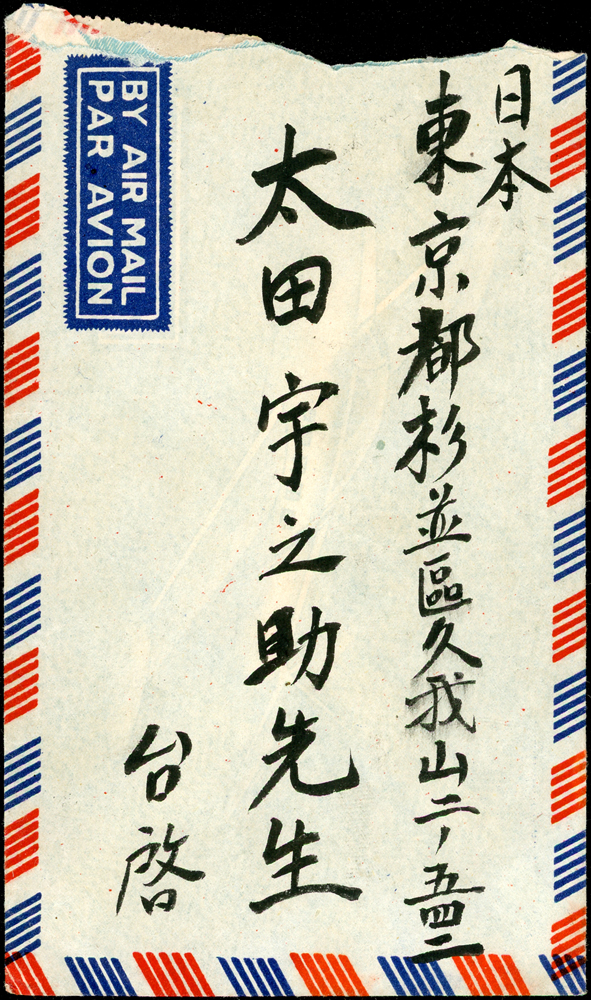 日本
東京都杉並區久我山二ノ五四二
太田宇之助先生
台啓
BY AIR MAIL
PAR AVION